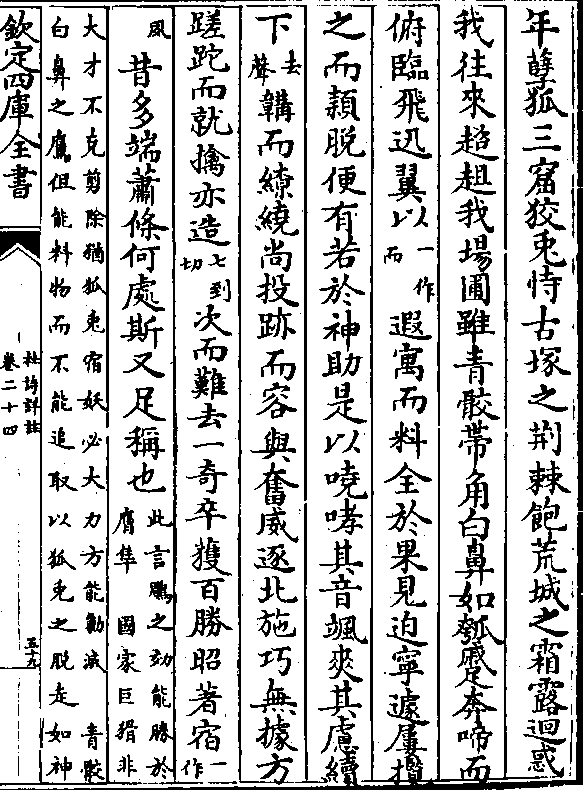 年孽狐三窟狡兎恃古塚之荆棘飽荒城之霜露迴惑
我往來趑趄我場圃雖青骹帶角白鼻如瓠蹙奔蹄而
俯臨飛迅翼以一作而遐寓而料全於果見迫寧遽屢攬
之而穎脫便有若於神助是以嘵哮其音颯爽其慮續
下去聲韝而繚繞尚投跡而容與奮威逐北施巧無據方
蹉跎而就擒亦造七到切次而難去一奇卒獲百勝昭著宿一作
夙昔多端蕭條何處斯又足稱也此言鵰之効能勝於
鷹隼 國家巨猾非
大才不克剪除猶狐兎宿妖必大力方能勦滅 青骹
白鼻之鷹但能料物而不能追取以狐兎之脫走如神
欽定四庫全書
杜詩詳註
卷二十四
五十九